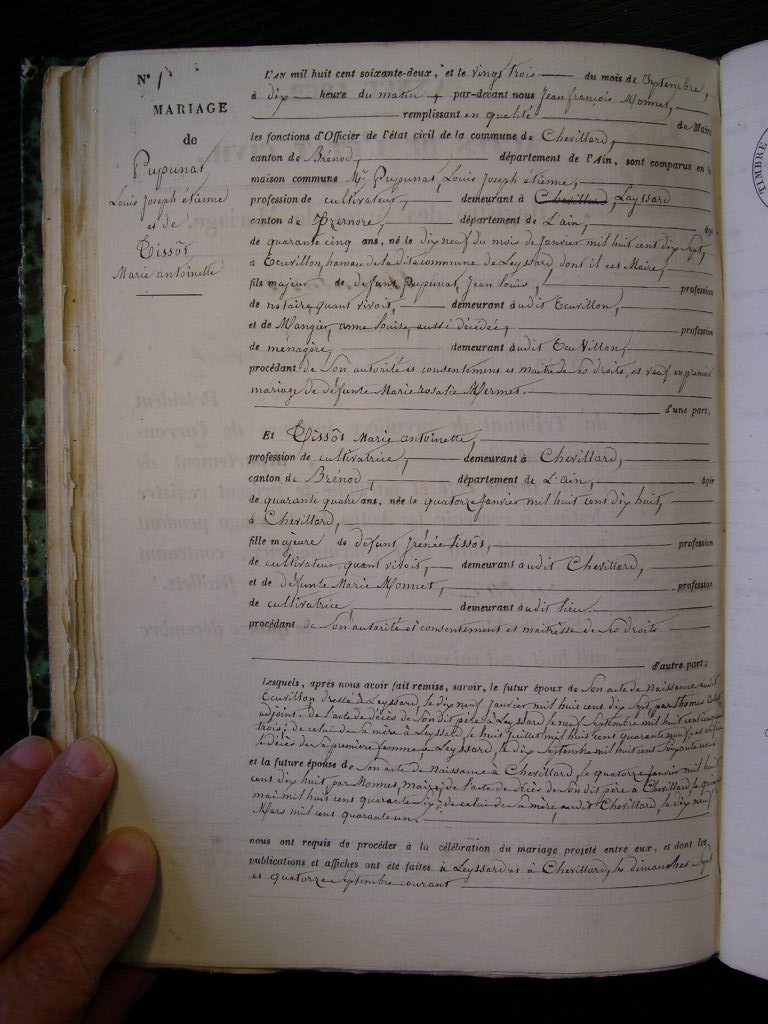 N° 1
MARIAGE
de
Pupunat
Louis Joseph étienne
et de
Tissôt
Marie antoinette
L'AN mil huit cent soixante-deux, et le vingt trois du mois de Septembre,
à dix heure du matin par-devant nous Jean françois Monnet,
remplissant en qualité de Maire
les fonctions d'Officier de l'état civil de la commune de Chevillard,
canton de Brénod, département de l'Ain, sont comparus en la
maison commune Mr Pupunat, Louis Joseph etienne,
profession de cultivateur, demeurant à Chevillard, Leyssard
canton de Izernore, département de L'ain, âgé
de quarante cinq ans, né le dix neuf du mois de Janvier mil huit cent dix sept,
à Ecuvillon, hameau de la dite commune de Leyssard, dont il est Maire,
fils majeur de défunt Pupunat, Jean Louis, profession
de notaire, quant vivoit, demeurant audit Ecuvillon,
et de Mangier, anne Louise, aussi décédée, profession
de ménagère, demeurant audit Ecuvillon,
procédant de Son autorité et consentement et maitre de ses droits, et veuf en premier
mariage de défunte Marie rosalie Mermet.
d'une part.
Et Tissôt Marie antoinette,
profession de cultivatrice, demeurant à Chevillard,
canton de Brénod, département de L'ain, âgée
de quarante quatre ans, née le quatorze Janvier mil huit cent dix huit,
à Chevillard,
fille majeure de défunt Irénée tissôt, profession
de cultivateur quant vivoit, demeurant audit Chevillard,
et de défunte Marie Monnet, profession
de cultivatrice, demeurant audit lieu.
procédant de Son autorité et consentement et maitresse de ses droits
d'autre part;
Lesquels, après nous avoir fait remise, savoir, le futur époux de Son acte de Naissance audit
Ecuvillon dressé à Leyssard, le dix neuf Janvier mil huit cent dix sept, par Thomas
adjoint. de l'acte de décès de Son dit père à Leyssard, le neuf Septembre mil huit cent
trois, de celui de Sa mère à Leyssard, le huit Juillet mil huit cent quarante neuf, et
le décès de Sa première femme, à Leyssard, le dix Septembre mil huit cent soixante
et la future épouse de Son acte de Naissance à Chevillard, le quatorze Janvier mil huit
cent dix huit, par Monnet, maire, de l'acte de décès de Son dit père à Chevillard, le
mai mil huit cent quarante Six, de celui de Sa mère audit Chevillard, le dix neuf
Mars mil cent quarante un.
nous ont requis de procéder à la célébration du mariage projeté entre eux, et dont les
publications et affiches ont été faites à Leyssard, et à Chevillard, les dimanches Sept
et quatorze Septembre courant
TIMBRE